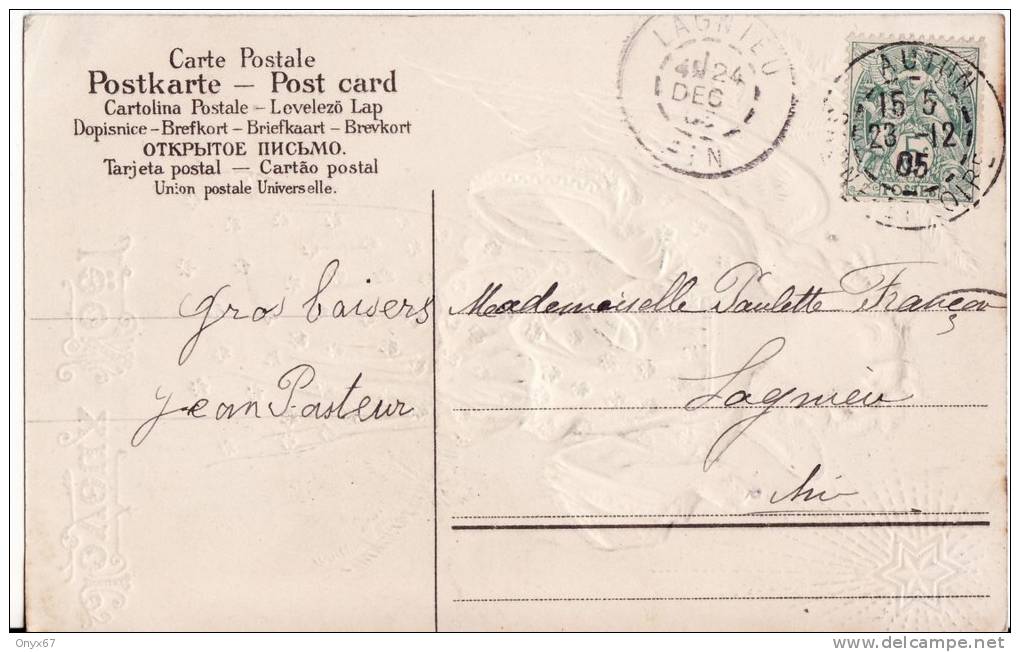 Carte Postale
Postkarte — Post card
Cartolina Postale – Levelező Lap
Dopisnice – Brefkort – Briefkaart – Brevkort
ОТКРЫТОЕ ПИСЬМО.
Tarjeta postal — Cartão postal
Union postale Universelle.
LAGNIEU
24
DEC
AUTUN
15 5
23 -12
05
SAÔNE ET LOIRE
gros baisers
Jean Pasteur
Mademoiselle Paulette Françon
Lagnieu
Ain
Onyx67
delcampe.net